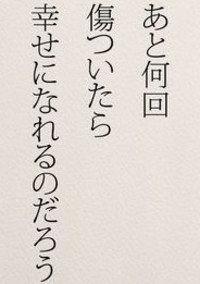 あと何回
傷ついたら
幸せになれるのだろう